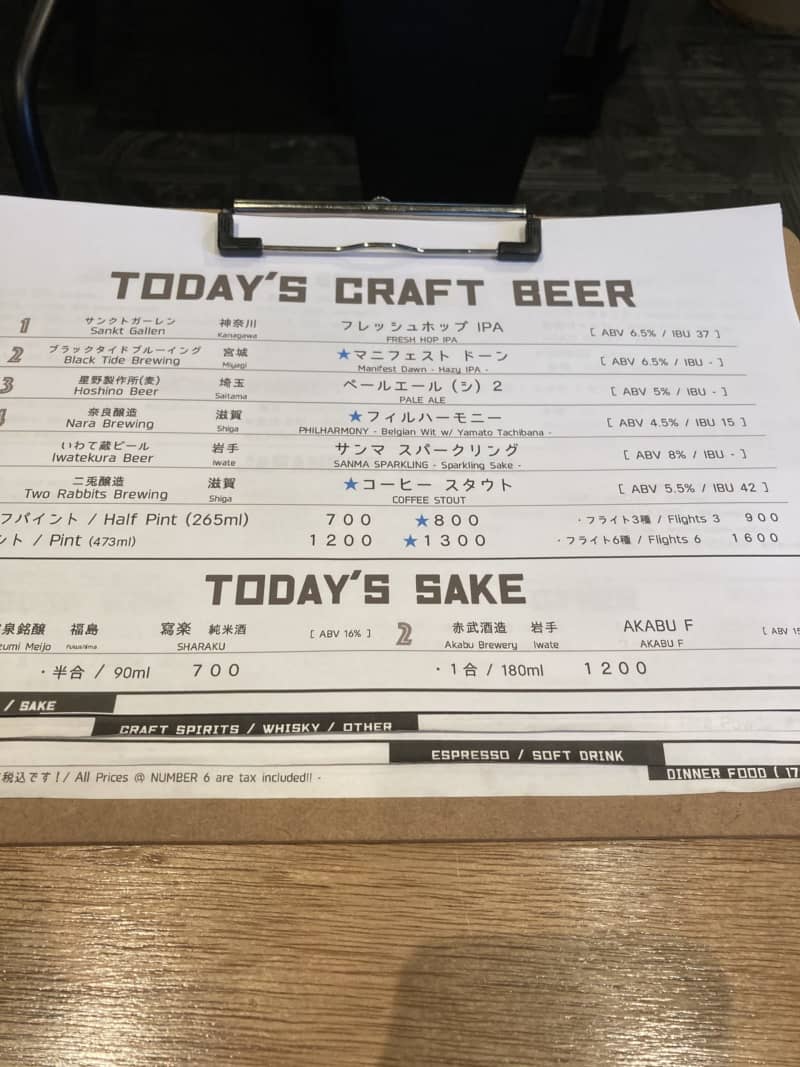 TODAY'S CRAFT BEER
1 サンクトガーレン 神奈川 フレッシュホップ IPA [ ABV 6.5% / IBU 37 ]
Sankt Gallen Kanagawa FRESH HOP IPA
2 ブラックタイドブルーイング 宮城 ★マニフェスト ドーン [ ABV 6.5% / IBU - ]
Black Tide Brewing Miyagi Manifest Dawn - Hazy IPA -
3 星野製作所(麦) 埼玉 ペールエール (シ) 2 [ ABV 5% / IBU - ]
Hoshino Beer Saitama PALE ALE
4 奈良醸造 滋賀 ★フィルハーモニー [ ABV 4.5% / IBU 15 ]
Nara Brewing Shiga PHILHARMONY - Belgian Wit w/ Yamato Tachibana -
いわて蔵ビール 岩手 サンマ スパークリング [ ABV 8% / IBU - ]
Iwatekura Beer Iwate SANMA SPARKLING - Sparkling Sake -
二兎醸造 滋賀 ★コーヒー スタウト [ ABV 5.5% / IBU 42 ]
Two Rabbits Brewing Shiga COFFEE STOUT
フパイント / Half Pint (265ml) 700 ★800 ・フライト3種 / Flights 3 900
ント / Pint (473ml) 1200 ★1300 ・フライト6種 / Flights 6 1600
TODAY'S SAKE
泉銘醸 福島 寫楽 純米酒 [ ABV 16% ] 2 赤武酒造 岩手 AKABU F [ ABV 15
zumi Meijo Fukushima SHARAKU Akabu Brewery Iwate AKABU F
・半合 / 90ml 700 ・1合 / 180ml 1200
/ SAKE
CRAFT SPIRITS / WHISKY / OTHER
ESPRESSO / SOFT DRINK
税込です!/ All Prices @ NUMBER 6 are tax included!! -
DINNER FOOD ( 17